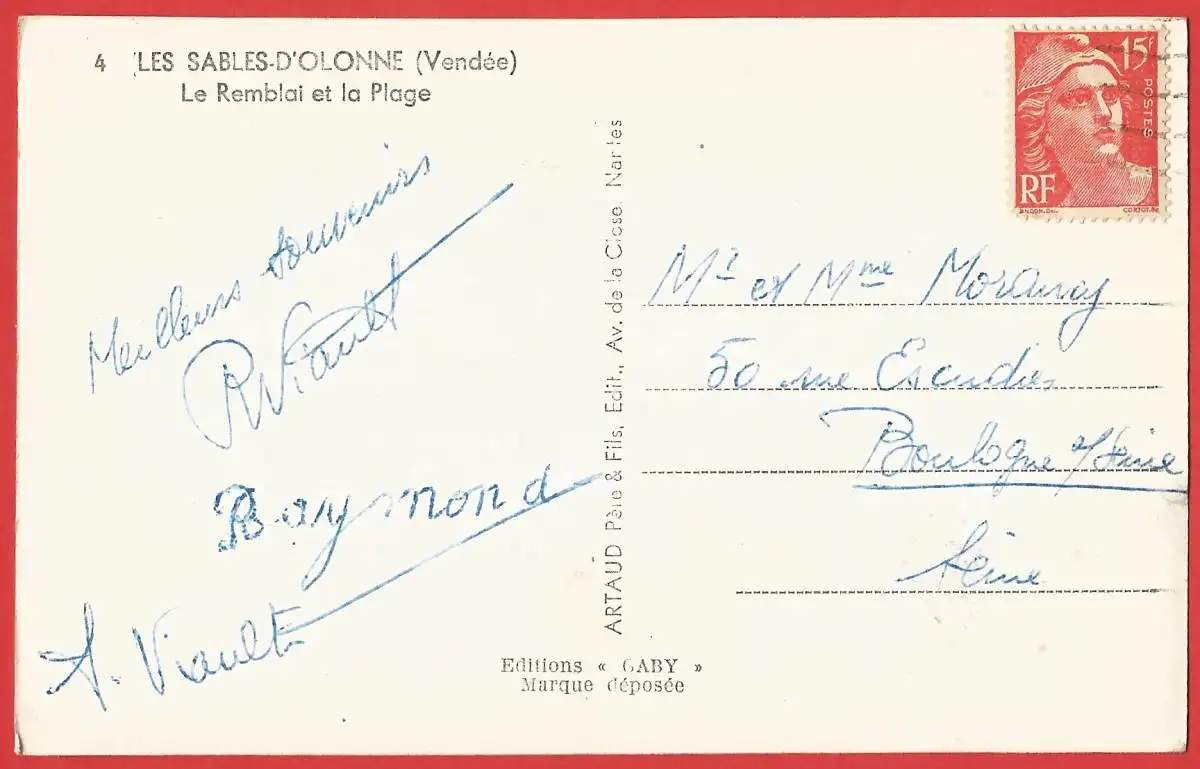 4 LES SABLES-D'OLONNE (Vendée)
Le Remblai et la Plage
Meilleurs souvenirs
R Viault
Raymond
A. Viault
ARTAUD Père & Fils, Edit., Av. de la Close, Nantes
Editions « GABY »
Marque déposée
15F
POSTES
RF
Mr et Mme
50 rue Escudier
Boulogne s/Seine
Seine